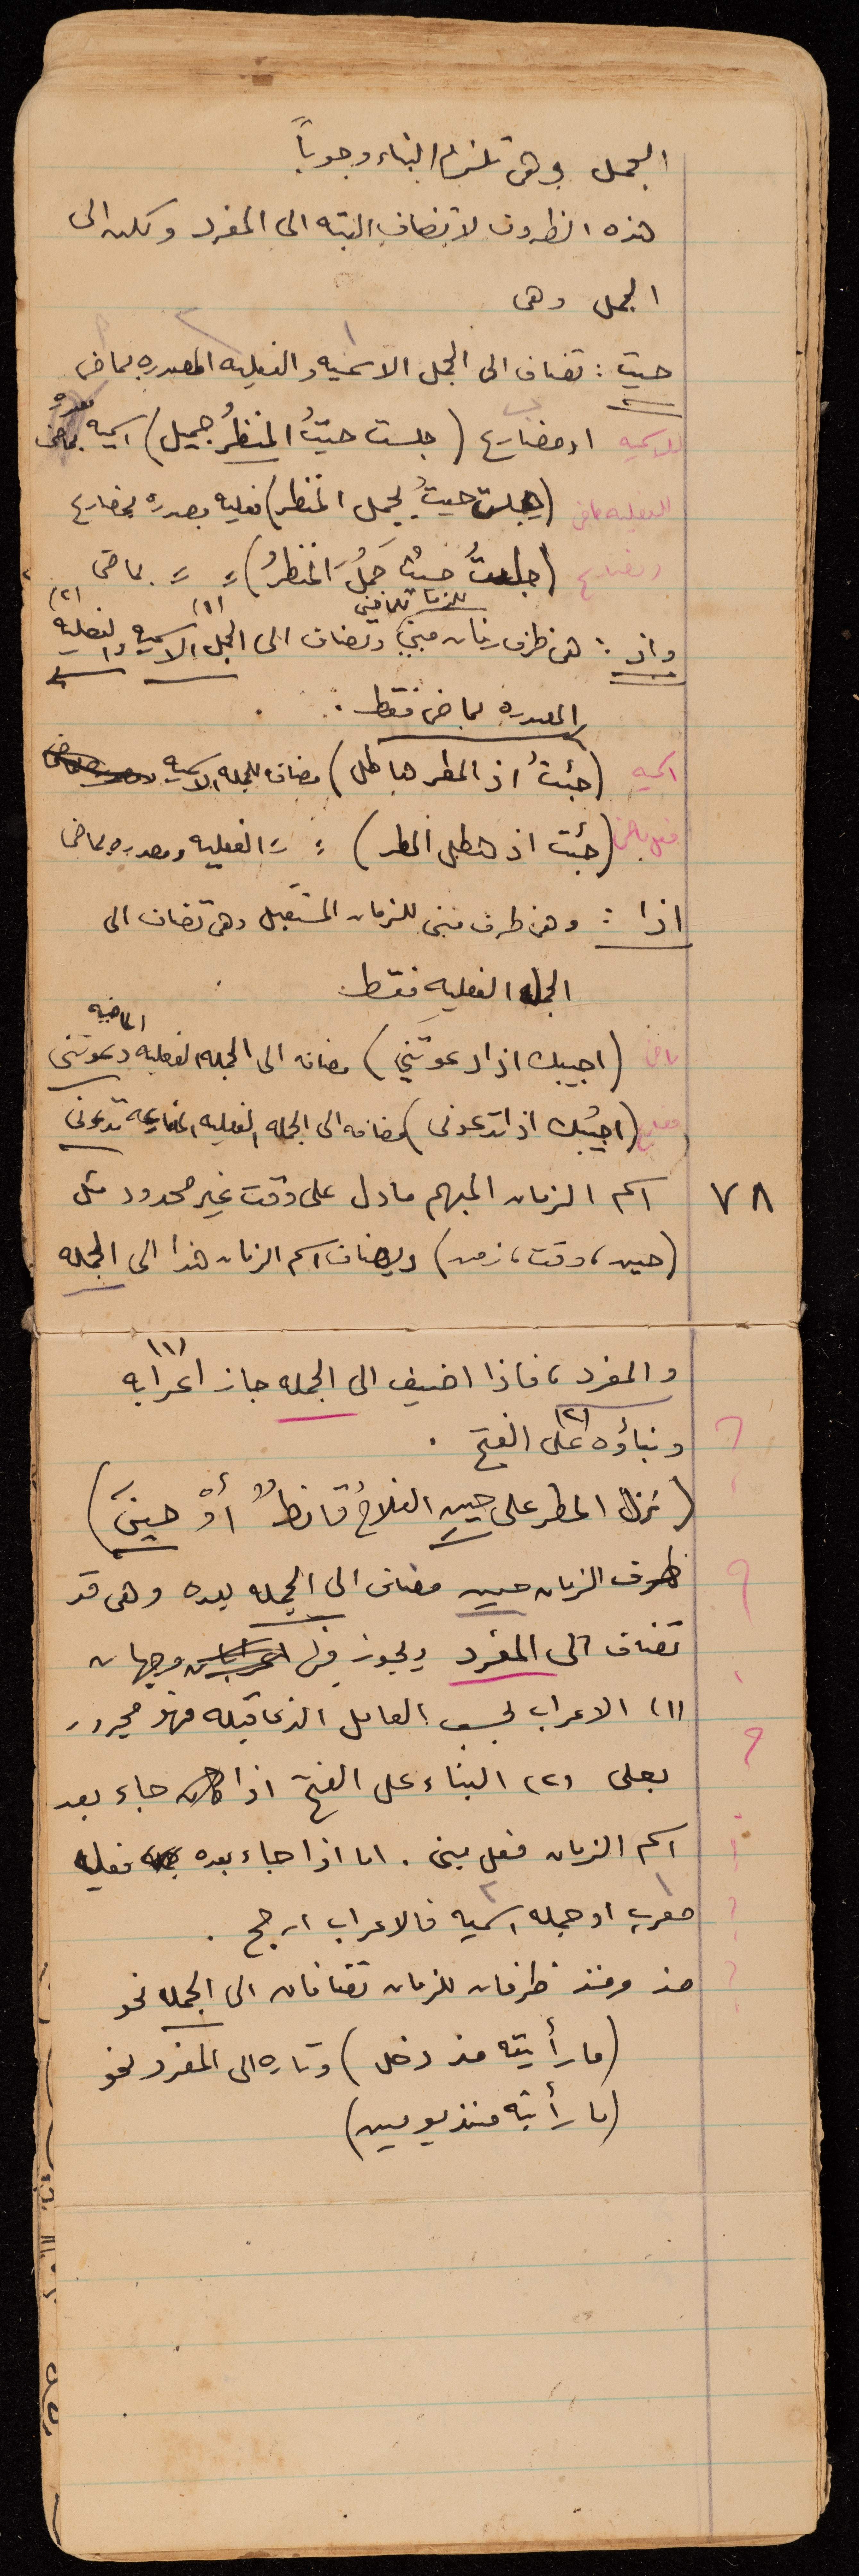 الجمل وهي تلتزم البناء وجوباً
هذه الظروف لا تضاف البته الى المفرد ولكن الى
الجمل وهي
حيث : تضاف الى الجمل الاسميه والفعليه المصدره بماض
للاسميه او مضارع (جلست حيثُ المنظرُ جميل) اسميه
الفعليه ماض (جلست حيثُ يجمل المنظر) فعليه مصدره بمضارع
ومضارع (جلستُ حيثُ جَمُلَ المنظرُ) = = بماضى
للزمان الماضي (١) (٢)
واذ : هى ظرف زمان مبنى وتضاف الى الجمل الاسميه والفعليه
المصدره بماض فقط .
اسميه (جئتُ اذ المطر هاطل) مضاف للجمله الاسميه
فعل ماض (جئت اذ هطل المطر) = = الفعليه ومصدره بماض
اذا : وهى ظرف مبنى للزمان المستقبل وهى تضاف الى
الجمله الفعليه فقط
الماضيه
ماض (اجيبك اذا دعوتني) مضافه الى الجمله الفعليه دعوتنى
مضارع (اجيبك اذا تدعونى) مضافه الى الجمله الفعليه المضارعه تدعونى
٧٨ اسم الزمان المبهم مادل على وقت غير محدود مثل
(حين، وقت، زمن) ويضاف اسم الزمان هذا الى الجمله
والمفرد، فاذا اضيف الى الجمله جاز اعرابه (١)
وبناؤه (٢) على الفتح .
(نزل المطر على حينِ الفلاحُ قانطٌ أوْ حينَ)
ظرف الزمان حين مضاف الى الجمله بعده وهى قد
تضاف الى المفرد ويجوز فى وجهان
(١) الاعراب بحسب العامل الذى قبله فهو مجرور
بعلى (٢) البناء على الفتح اذا جاء بعد
اسم الزمان فعل مبنى . اما اذا جاء بعده فعليه
معرب او جمله اسميه فالاعراب ارجح .
مذ ومنذ ظرفان للزمان تضافان الى الجمله نحو
(ما رأيته مذ دخل) وتاره الى المفرد نحو
(ما رأيته منذ يومين)